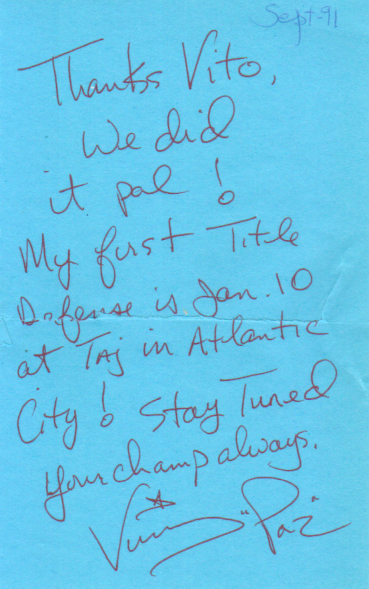 Sept-91
Thanks Vito,
We did
it pal!
My first Title
Defense is Jan. 10
at TAJ in Atlantic
City! Stay Tuned
your champ always.
Vinny "Paz"